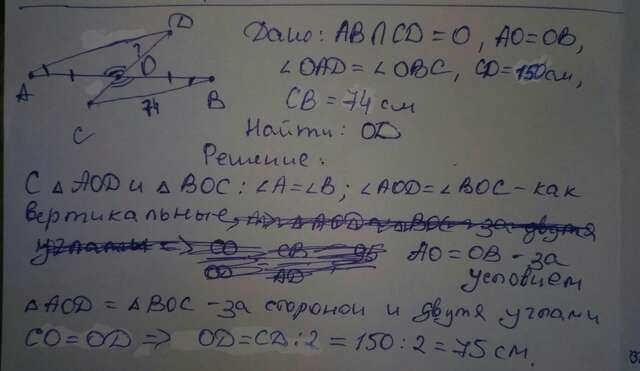 D
Дано: AB∩CD=O, AO=OB,
?
O
∠OAD=∠OBC, CD=150см,
A
74
B
CB=74 см
C
Найти: OD
Решение:
С △AOD и △BOC: ∠A=∠B; ∠AOD=∠BOC-как
вертикальные,
AO=OB-за
условием
△AOD=△BOC-за стороной и двумя углами
CO=OD=> OD=CD:2=150:2=75 см.